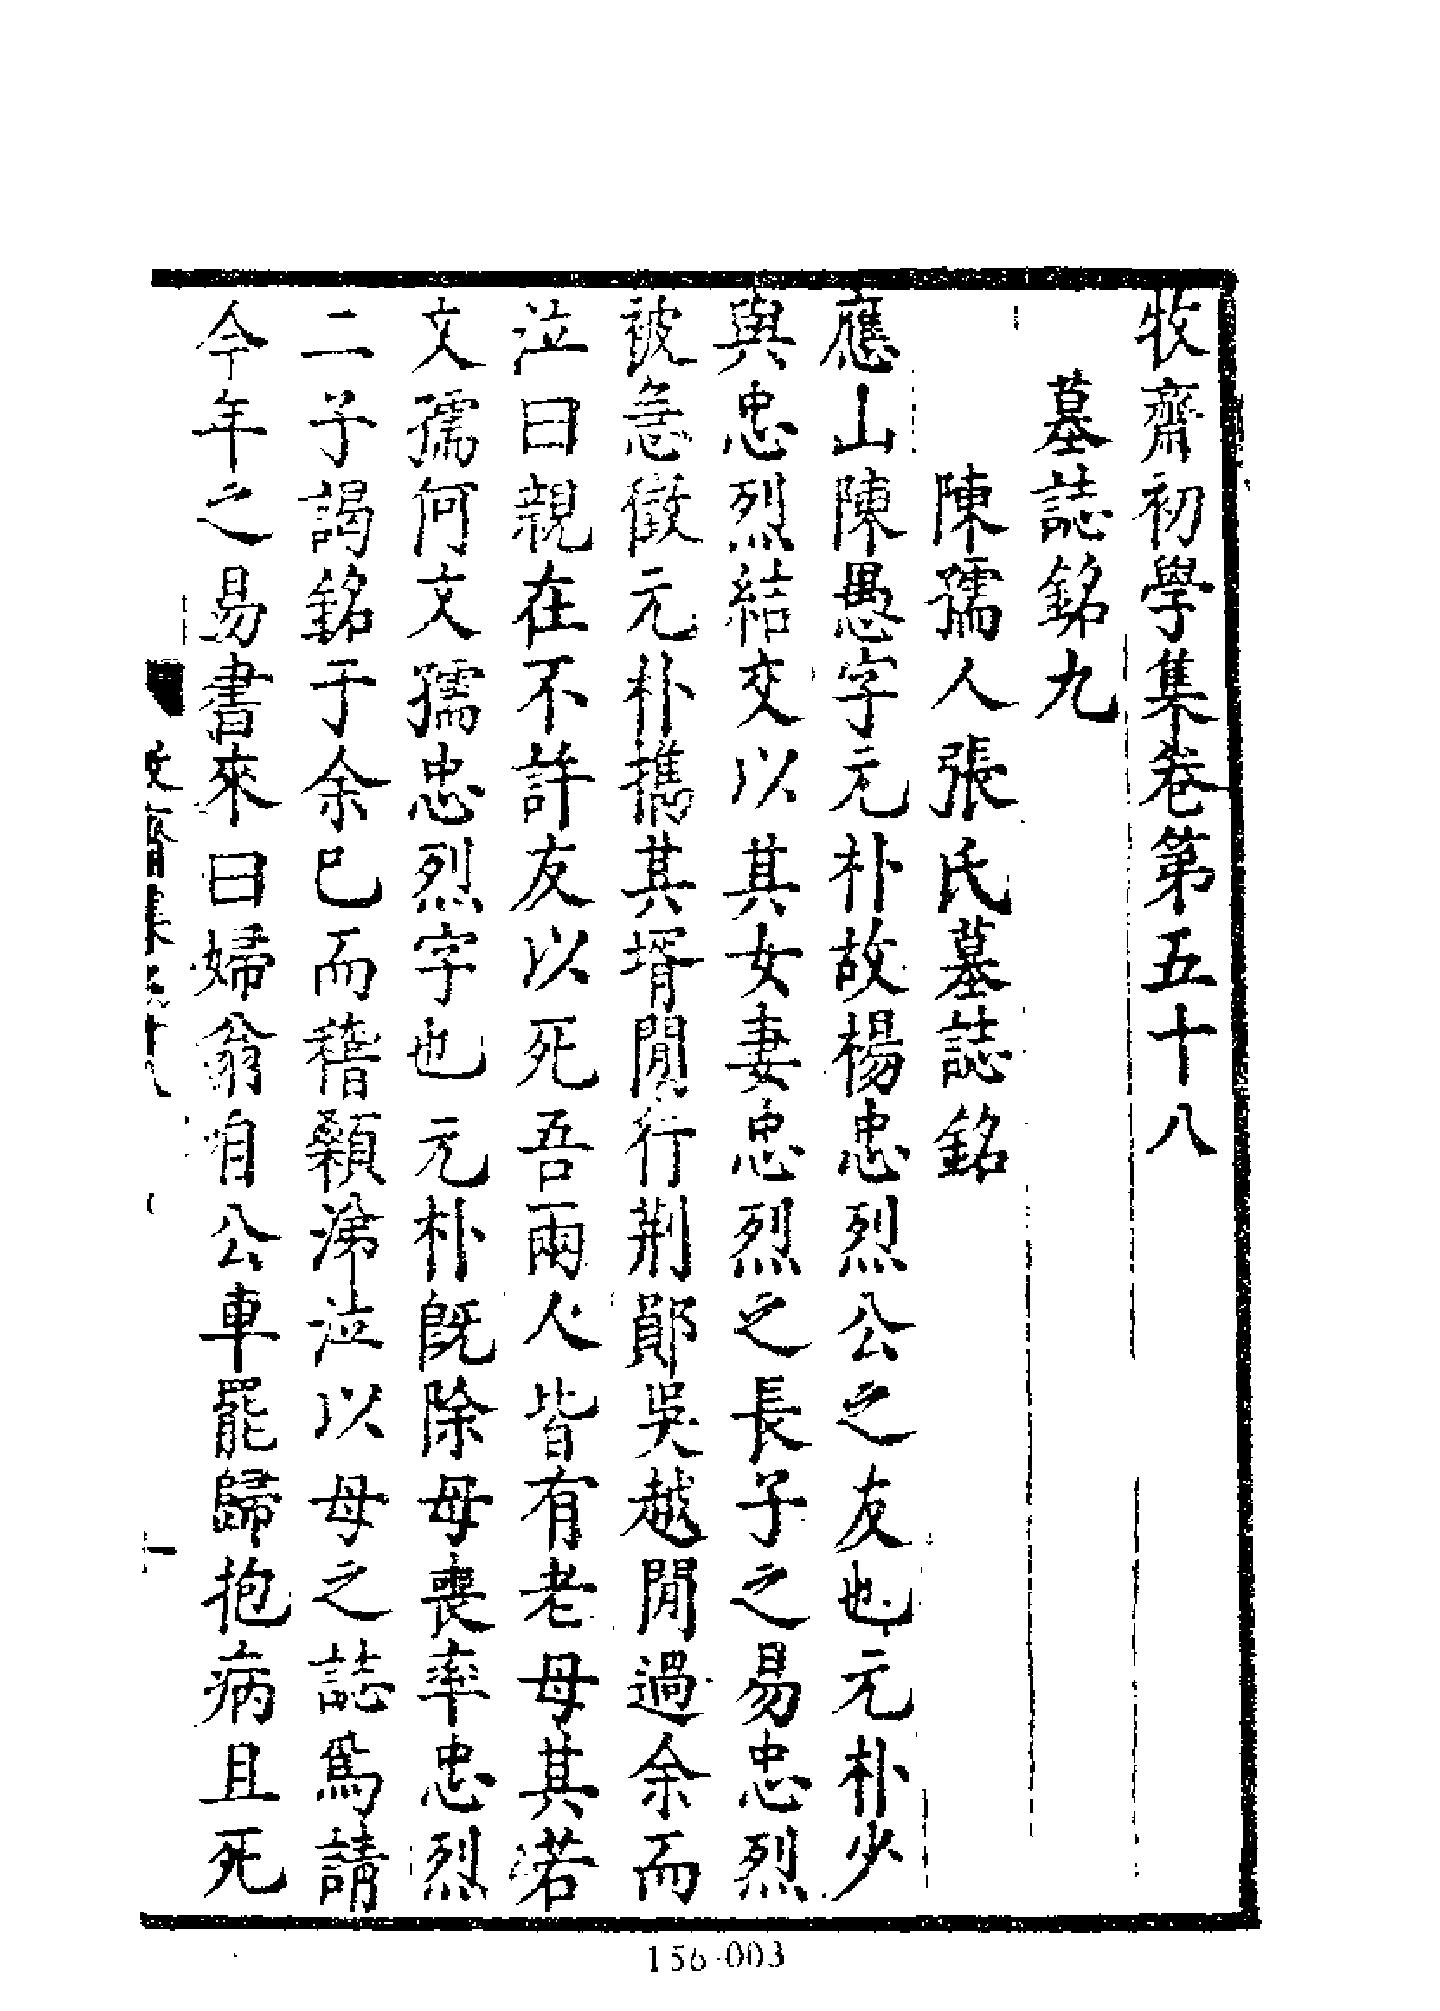 牧齋初學集卷第五十八
墓誌銘九
陳孺人張氏墓誌銘
應山陳愚字元朴故楊忠烈公之友也元朴少
與忠烈結交以其女妻忠烈之長子之易忠烈
被急徵元朴攜其壻閒行荆鄖吳越閒過余而
泣曰親在不許友以死吾兩人皆有老母其若
文孺何文孺忠烈字也元朴旣除母喪率忠烈
二子謁銘于余巳而稽顙涕泣以母之誌爲請
今年之易書來曰婦翁自公車罷歸抱病且死
牧齋集五十八
一
156-003